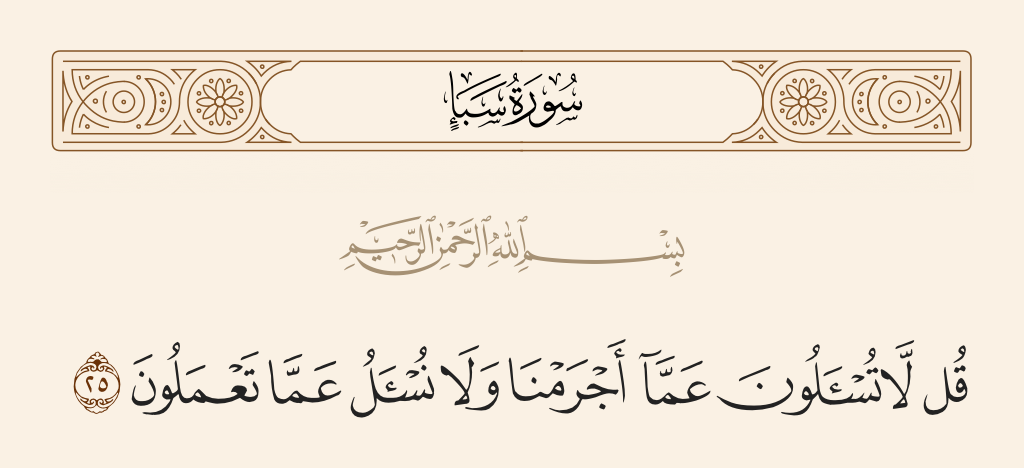 سُورَةُ سَبَإٍ
بِسْمِ ٱللَّهِ ٱلرَّحْمَٰنِ ٱلرَّحِيمِ
قُل لَّا تُسْـَٔلُونَ عَمَّآ أَجْرَمْنَا وَلَا نُسْـَٔلُ عَمَّا تَعْمَلُونَ ٢٥